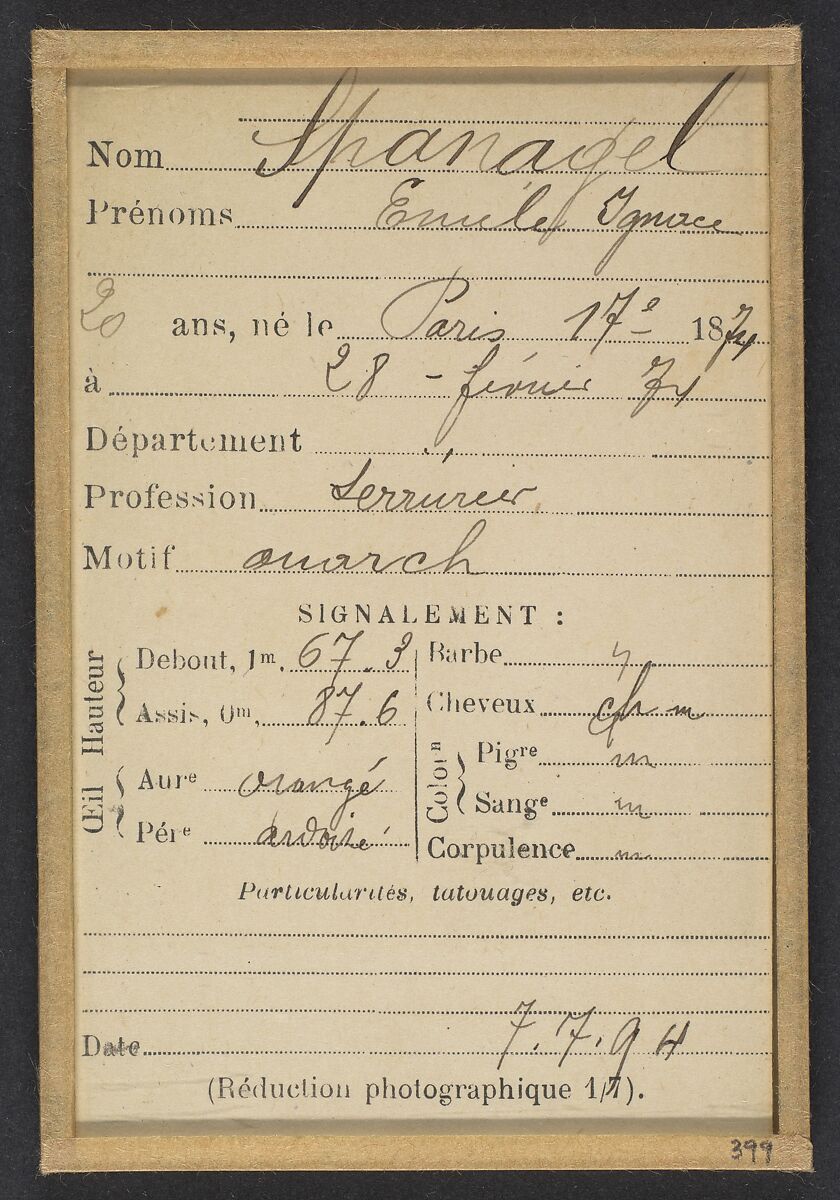 Nom Spanagel
Prénoms Emile Ignace
20 ans, né le Paris 17e 1874
à 28 - février 74
Département "
Profession Serrurier
Motif anarch
SIGNALEMENT :
Hauteur
Debout, 1m. 67.3
Assis, 0m, 87.6
Œil
Aure orangé
Pére ardoisé
Barbe
Cheveux ch m
Colorn
Pigre m
Sange m
Corpulence m
Particularités, tatouages, etc.
Date 7.7.94
(Réduction photographique 1/7).
399